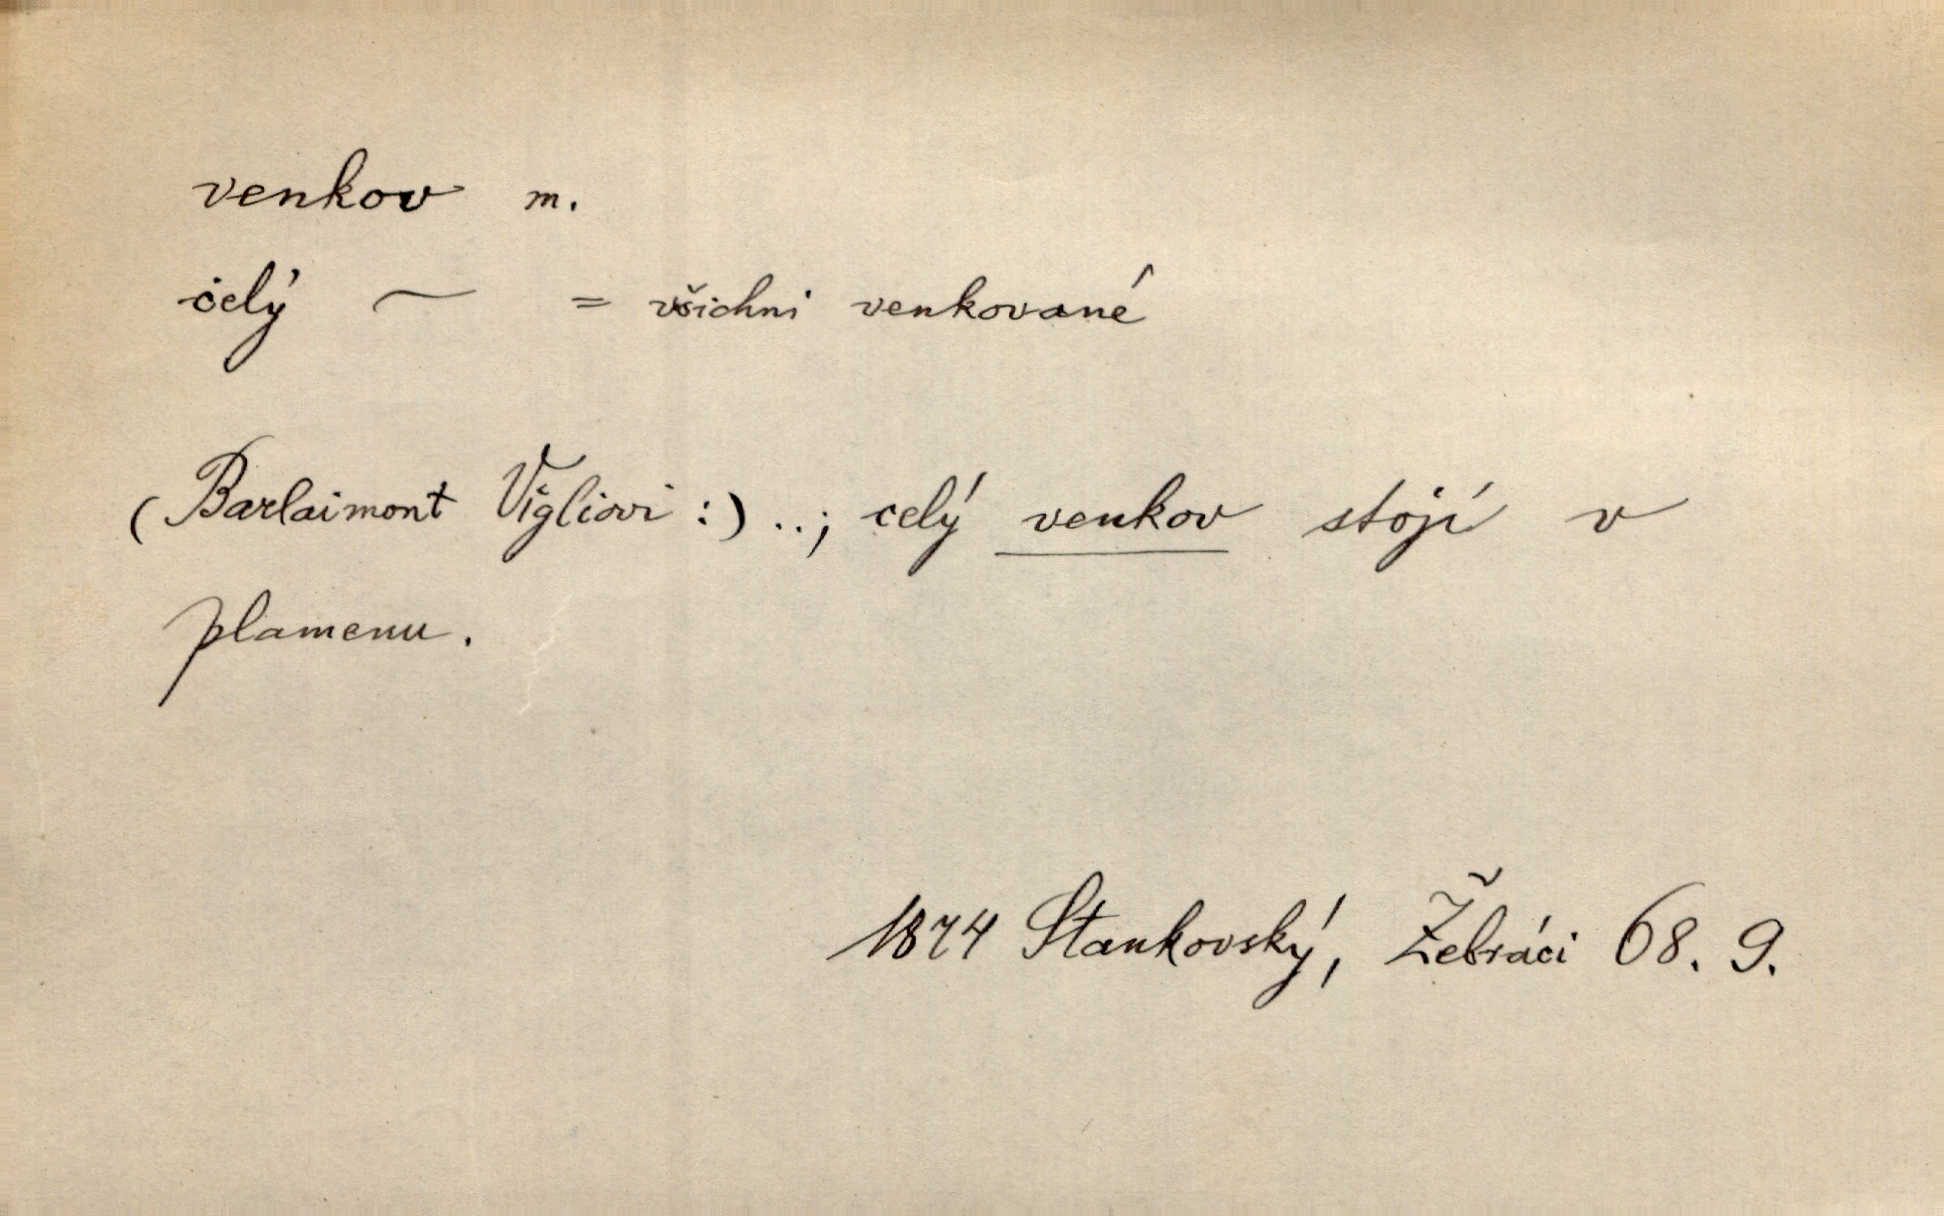 venkov m.
celý ~ = všichni venkované
(Barlaimont Vigliovi :) ..; celý venkov stojí v
plamenu.
1874 Stankovský, Žebráci 68. 9.